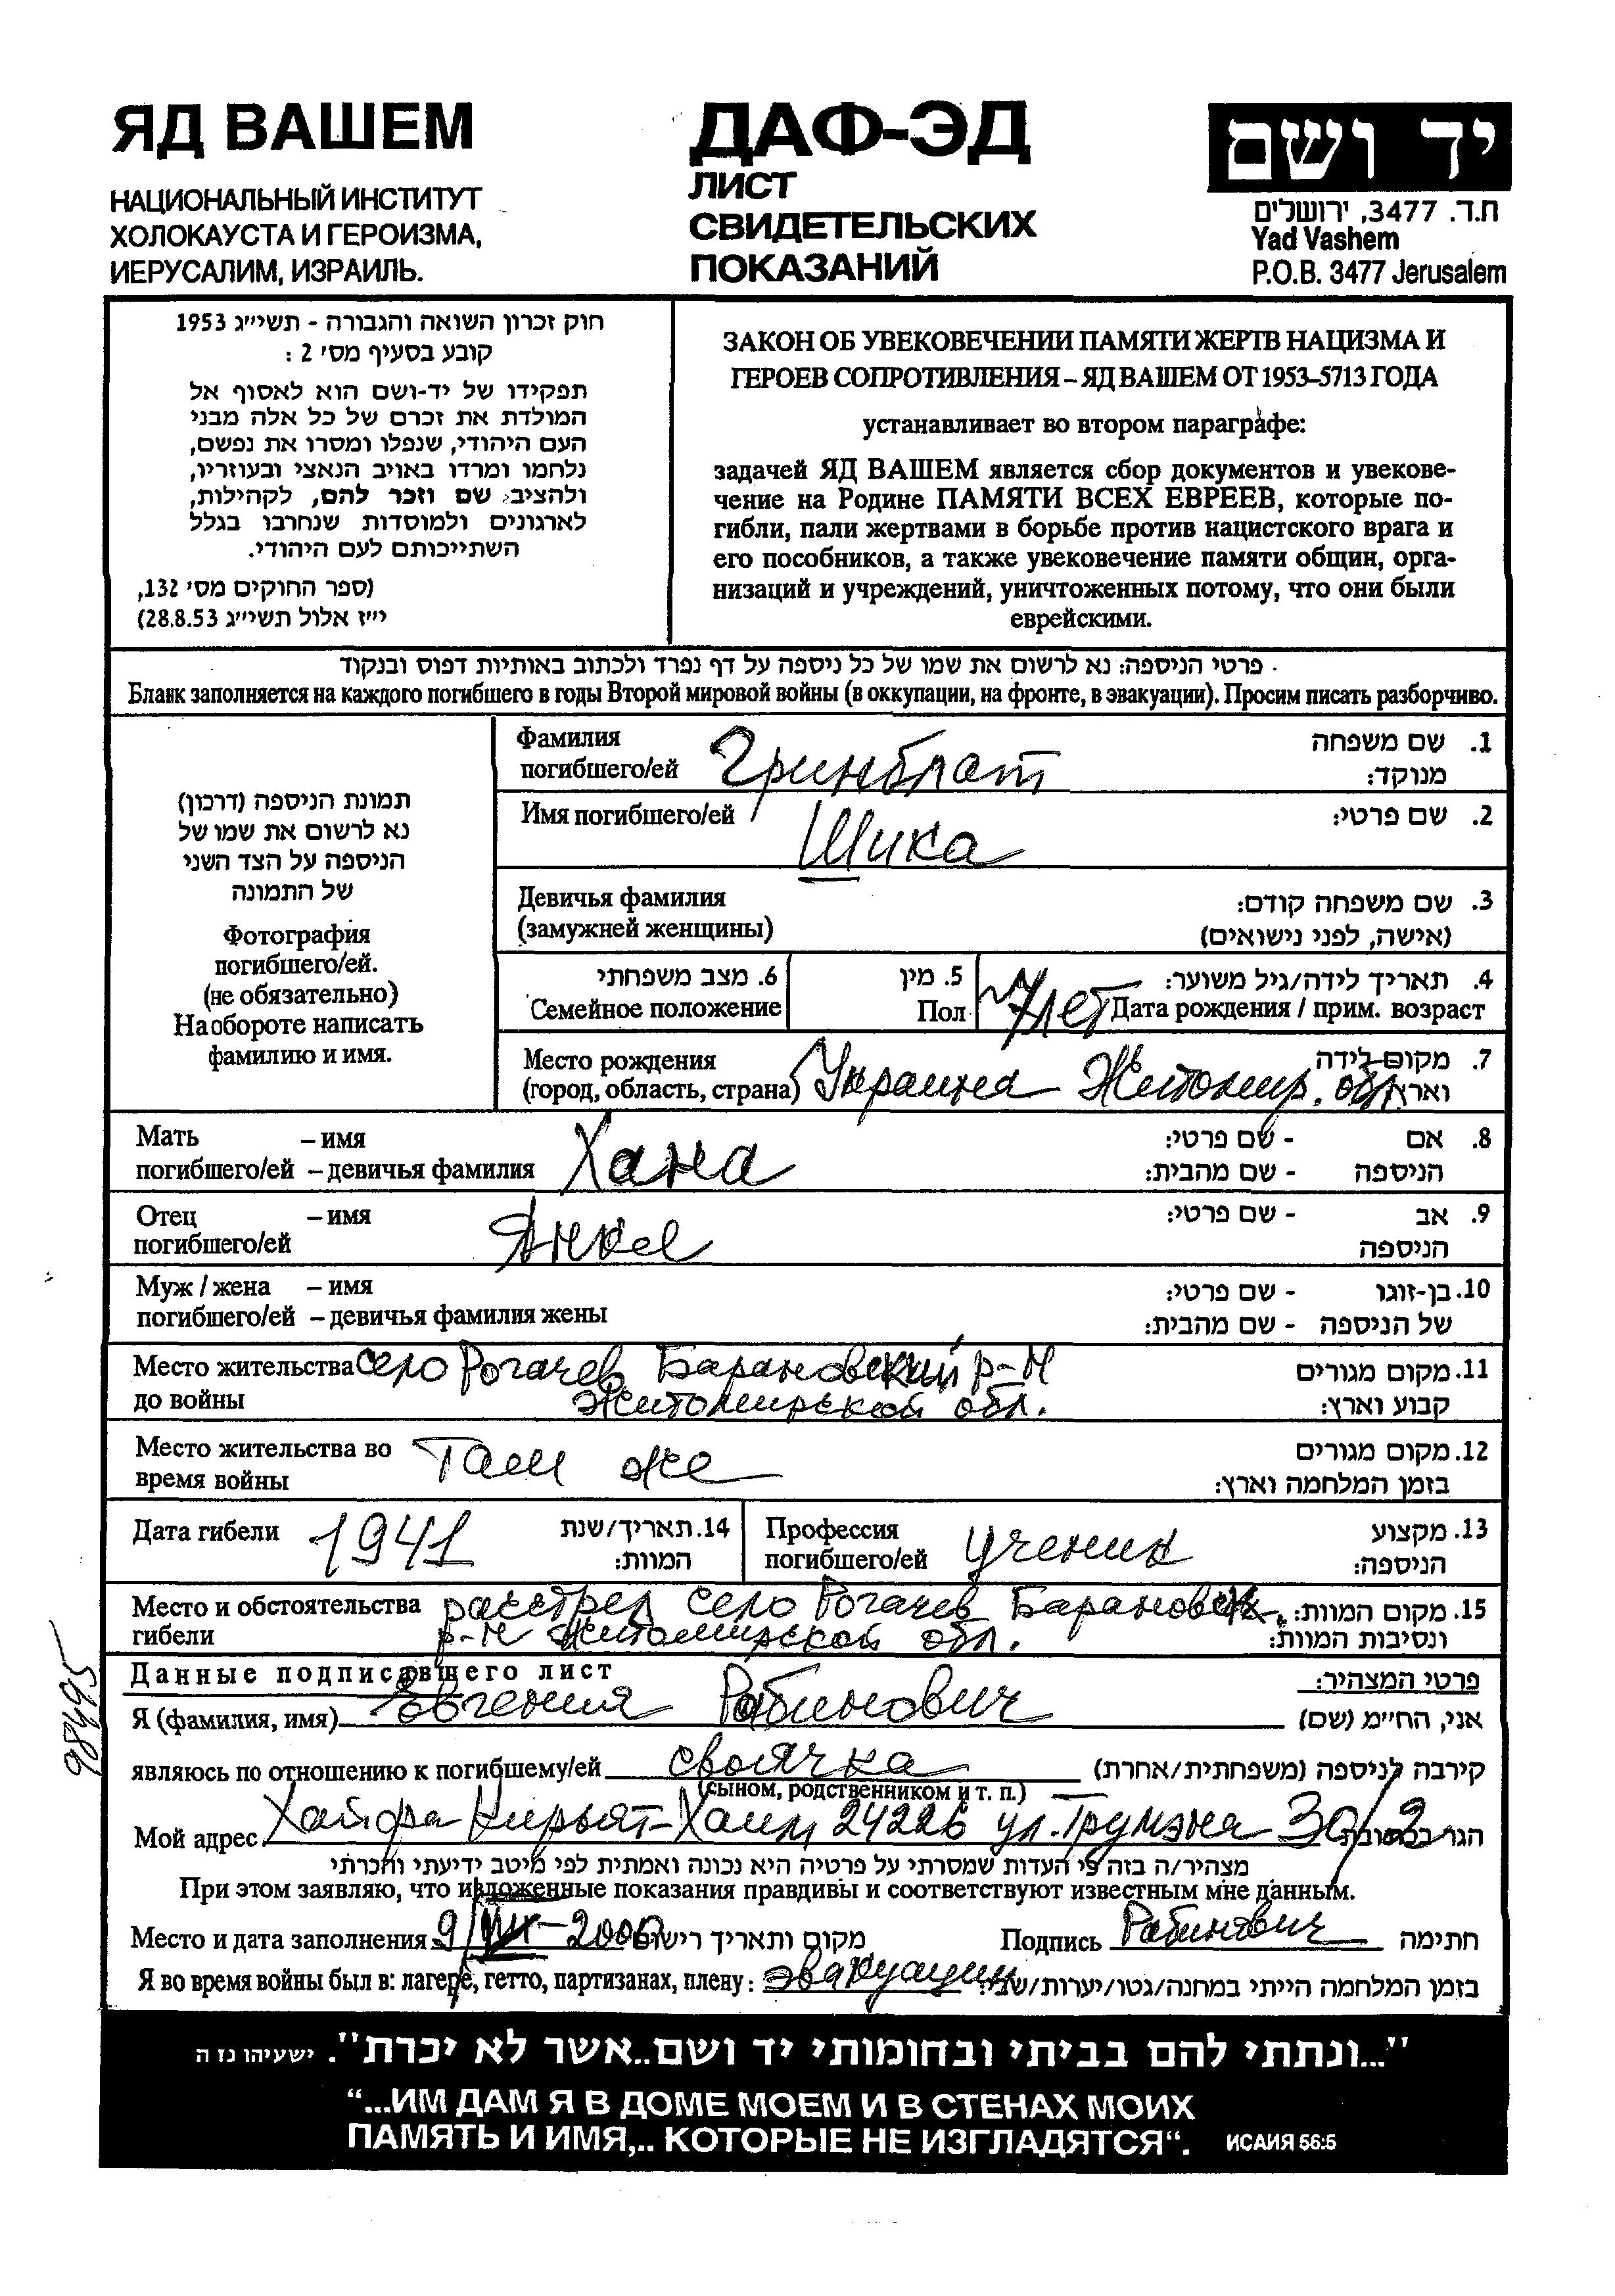 ЯД ВАШЕМ
НАЦИОНАЛЬНЫЙ ИНСТИТУТ
ХОЛОКАУСТА И ГЕРОИЗМА,
ИЕРУСАЛИМ, ИЗРАИЛЬ.
ДАФ-ЭД
ЛИСТ
СВИДЕТЕЛЬСКИХ
ПОКАЗАНИЙ
יד ושם
ת.ד. 3477, ירושלים
Yad Vashem
P.O.B. 3477 Jerusalem
חוק זכרון השואה והגבורה - תשי״ג 1953
קובע בסעיף מס׳ 2 :
תפקידו של יד-ושם הוא לאסוף אל
המולדת את זכרם של כל אלה מבני
העם היהודי, שנפלו ומסרו את נפשם,
נלחמו ומרדו באויב הנאצי ובעוזריו,
ולהציב שם וזכר להם, לקהילות,
לארגונים ולמוסדות שנחרבו בגלל
השתייכותם לעם היהודי.
(ספר החוקים מס׳ 132,
י״ז אלול תשי״ג 28.8.53)
ЗАКОН ОБ УВЕКОВЕЧЕНИИ ПАМЯТИ ЖЕРТВ НАЦИЗМА И
ГЕРОЕВ СОПРОТИВЛЕНИЯ – ЯД ВАШЕМ ОТ 1953–5713 ГОДА
устанавливает во втором параграфе:
задачей ЯД ВАШЕМ является сбор документов и увекове-
чение на Родине ПАМЯТИ ВСЕХ ЕВРЕЕВ, которые по-
гибли, пали жертвами в борьбе против нацистского врага и
его пособников, а также увековечение памяти общин, орга-
низаций и учреждений, уничтоженных потому, что они были
еврейскими.
פרטי הניספה: נא לרשום את שמו של כל ניספה על דף נפרד ולכתוב באותיות דפוס ובנקוד
Бланк заполняется на каждого погибшего в годы Второй мировой войны (в оккупации, на фронте, в эвакуации). Просим писать разборчиво.
תמונת הניספה (דרכון)
נא לרשום את שמו של
הניספה על הצד השני
של התמונה
Фотография
погибшего/ей.
(не обязательно)
На обороте написать
фамилию и имя.
Фамилия
погибшего/ей Гринблат
1. שם משפחה
מנוקד:
Имя погибшего/ей Шика 2. שם פרטי:
Девичья фамилия
(замужней женщины)
3. שם משפחה קודם:
(אישה, לפני נישואים)
6. מצב משפחתי
Семейное положение
5. מין
Пол
~7 лет
4. תאריך לידה/גיל משוער:
Дата рождения / прим. возраст
Место рождения
(город, область, страна) Украина Житомир. обл.
7. מקום לידה
וארץ
Мать – имя
погибшего/ей – девичья фамилия Хана
8. אם - שם פרטי:
הניספה - שם מהבית:
Отец – имя
погибшего/ей Янкел
9. אב - שם פרטי:
הניספה
Муж / жена – имя
погибшего/ей – девичья фамилия жены
10. בן-זוגו - שם פרטי:
של הניספה - שם מהבית:
Место жительства село Рогачев Барановский р-н
до войны Житомирской обл.
11. מקום מגורים
קבוע וארץ:
Место жительства во
время войны Там же
12. מקום מגורים
בזמן המלחמה וארץ:
Дата гибели 1941
14. תאריך/שנת
המוות:
Профессия
погибшего/ей ученик
13. מקצוע
הניספה:
Место и обстоятельства расстрел село Рогачев Барановск.
гибели р-н Житомирской обл.
15. מקום המוות:
ונסיבות המוות:
Данные подписавшего лист פרטי המצהיר:
Я (фамилия, имя) Евгения Рабинович אני, הח״מ (שם)
являюсь по отношению к погибшему/ей своячка קירבה לניספה (משפחתית/אחרת)
(сыном, родственником и т. п.)
Мой адрес Хайфа Кирьят-Хаим 24226 ул. Трумэна 30/2 הגר בכתובת
מצהיר/ה בזה כי העדות שמסרתי על פרטיה היא נכונה ואמתית לפי מיטב ידיעתי והכרתי
При этом заявляю, что изложенные показания правдивы и соответствуют известным мне данным.
Место и дата заполнения 9/ 2000 מקום ותאריך רישום Подпись Рабинович חתימה
Я во время войны был в: лагере, гетто, партизанах, плену: эвакуации בזמן המלחמה הייתי במחנה/גטו/יערות/שבי:
98495
"...ונתתי להם בביתי ובחומותי יד ושם..אשר לא יכרת". ישעיהו נז ה
“...ИМ ДАМ Я В ДОМЕ МОЕМ И В СТЕНАХ МОИХ
ПАМЯТЬ И ИМЯ,.. КОТОРЫЕ НЕ ИЗГЛАДЯТСЯ“. ИСАИЯ 56:5